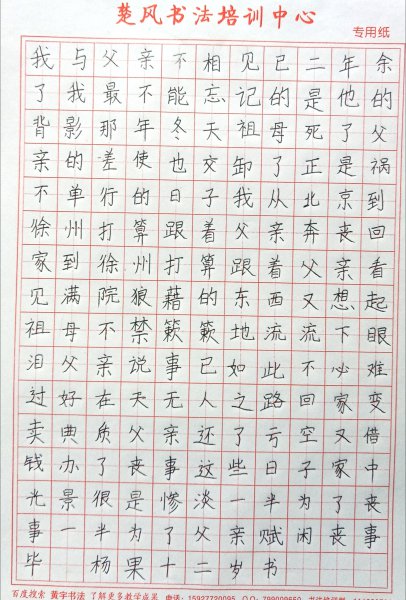 楚风书法培训中心
专用纸
我与父亲不相见已二年余
了我最不能忘记的是他的
背影那年冬天祖母死了父
亲的差使也交卸了正是祸
不单行的日子我从北京到
徐州打算跟着父亲奔丧回
家到徐州打算跟着父亲看
见满院狼藉的东西又想起
祖母不禁簌簌地流流下眼
泪父亲说事已如此不必难
过好在天无人之路回家变
卖典质父亲还了亏空又借
钱办了丧事这些日子家中
光景很是惨淡一半为了丧
事一半为了父亲赋闲丧事
毕 杨果十二岁书
百度搜索 黄字书法 了解更多教学成果 电话：15927720095 QQ：799009650